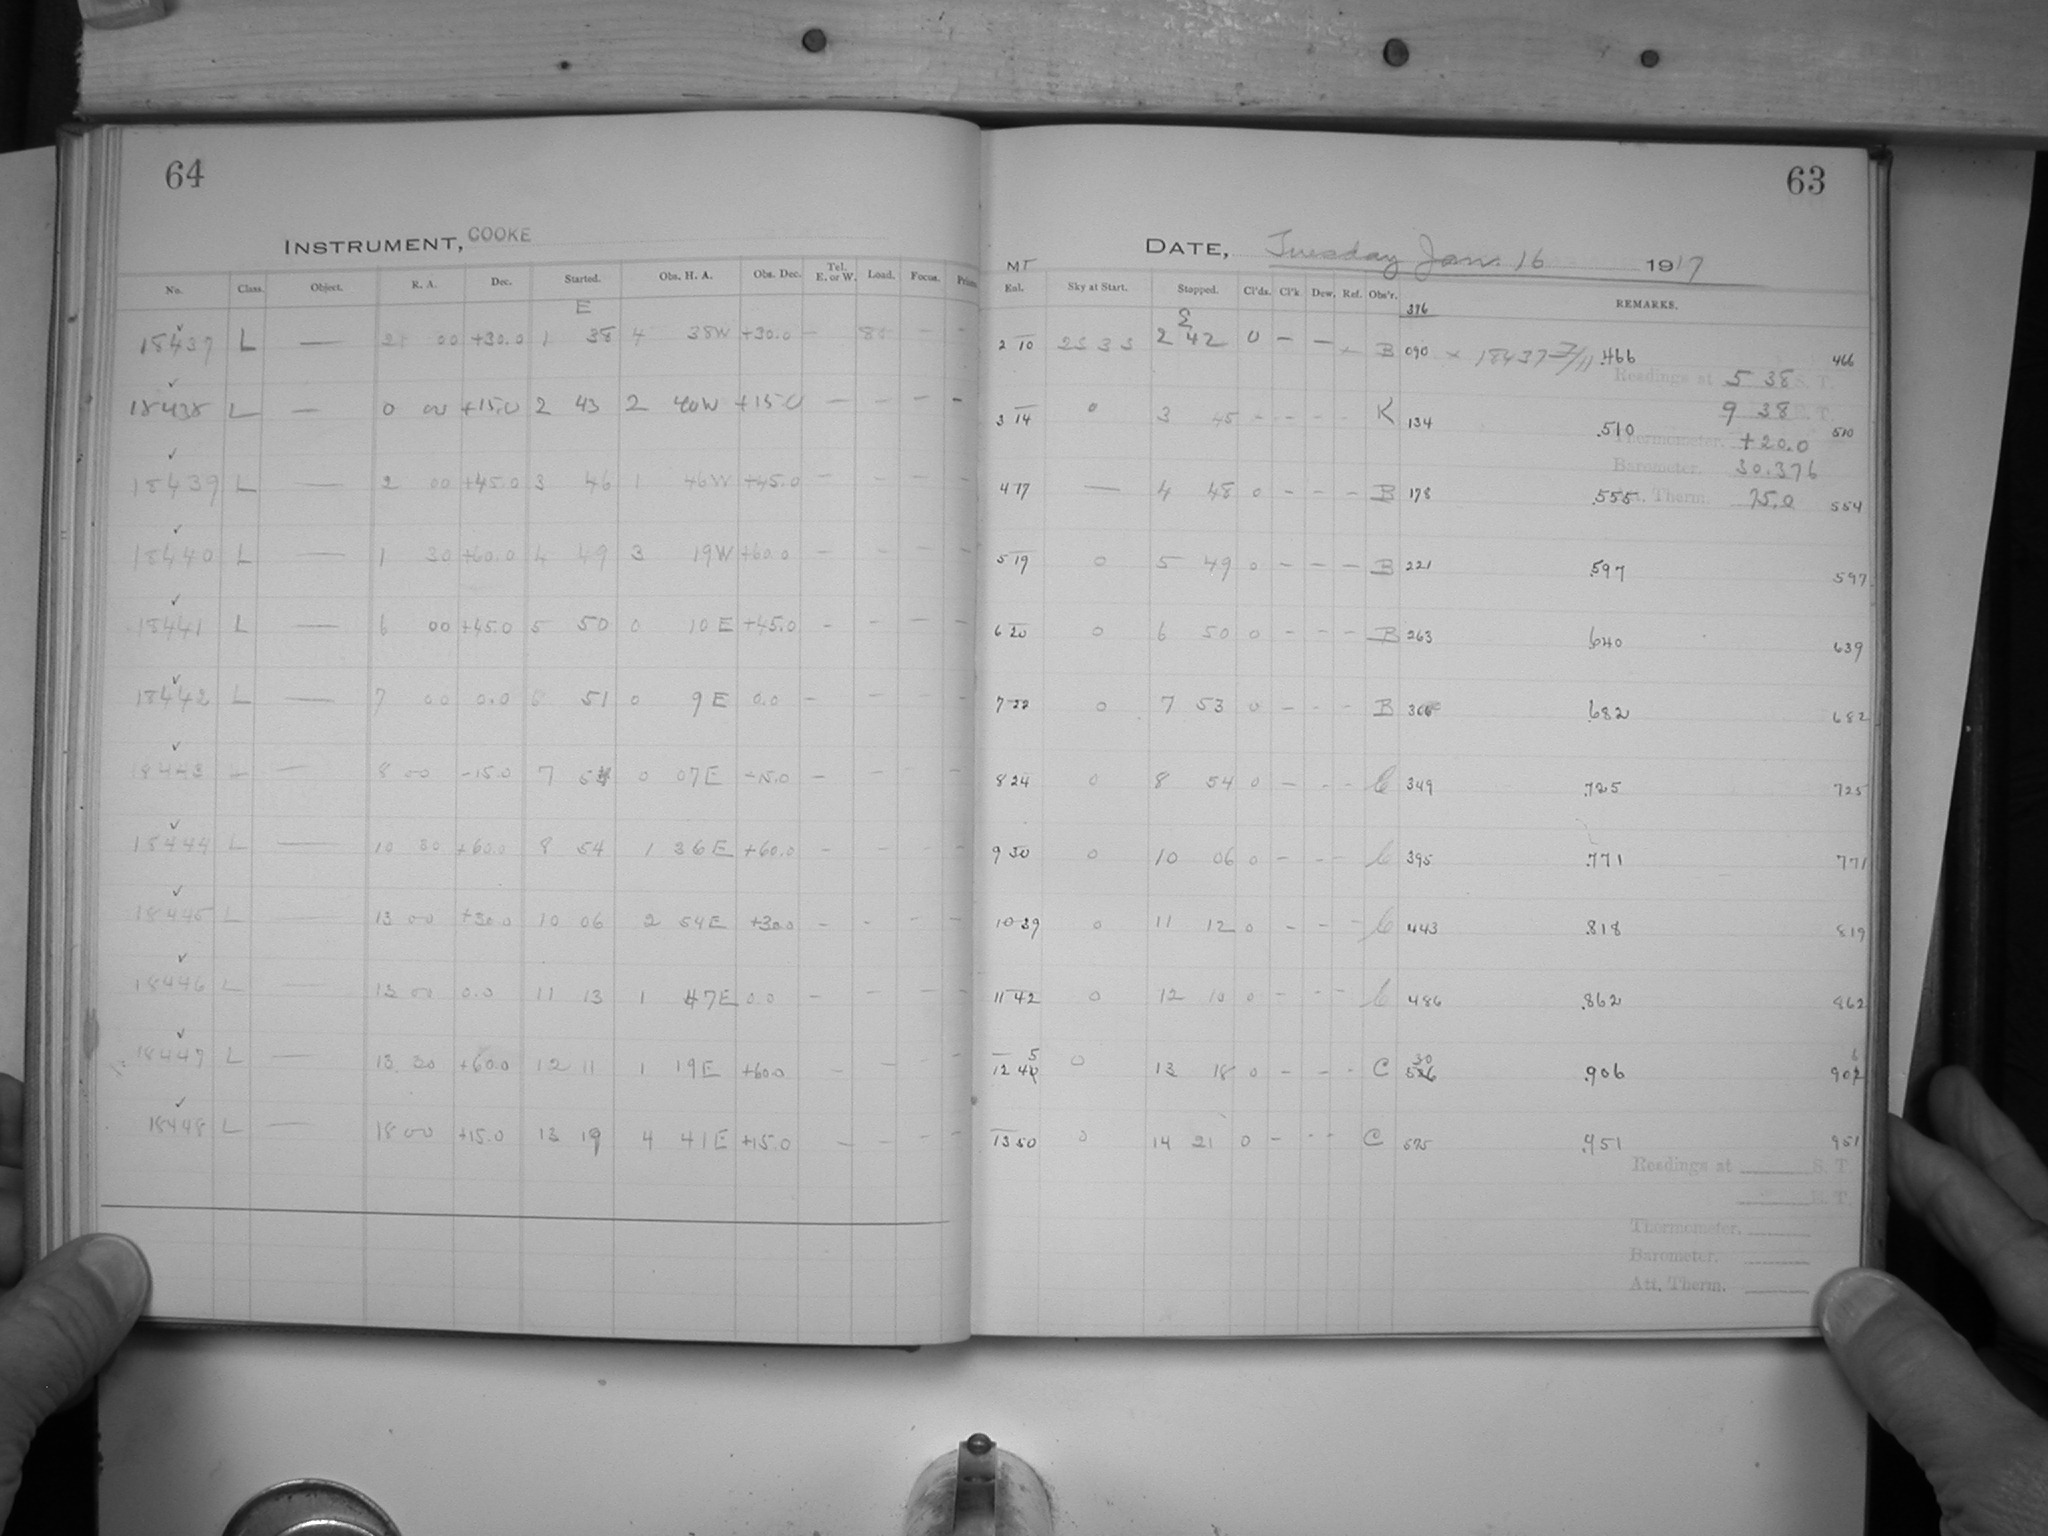 64
INSTRUMENT, COOKE
No. Class. Object. R. A. Dec. Started. Obs. H. A. Obs. Dec. Tel. E. or W. Load. Focus. Prism
E
18437 L — 00 +30.0 1 38 4 38W +30.0 — 80 — —
18438 L — 0 00 +15.0 2 43 2 40W +15.0 — — — —
18439 L — 2 00 +45.0 3 46 1 46W +45.0 — — — —
18440 L — 1 30 +60.0 4 49 3 19W +60.0 — — — —
18441 L — 6 00 +45.0 5 50 0 10E +45.0 — — — —
18442 L — 7 00 0.0 6 51 0 9E 0.0 — — — —
18443 — — 8 00 -15.0 7 54 0 07E -15.0 — — — —
18444 L — 10 30 +60.0 8 54 1 36E +60.0 — — — —
18445 L — 13 00 +30.0 10 06 2 54E +30.0 — — — —
18446 L — 13 00 0.0 11 13 1 47E 0.0 — — — —
18447 L — 13 30 +60.0 12 11 1 19E +60.0 — — —
18448 L — 18 00 +15.0 13 19 4 41E +15.0 — — — —
63
DATE, Tuesday Jan. 16 1917
MT
Enl. Sky at Start. Stopped. Cl'ds. Cl'k. Dew. Ref. Obs'r. 376 REMARKS.
2 10 2S 3 S 2 42 0 — — — B 090 × 18437 .466 466
Readings at 5 38 S. T.
3 14 0 3 45 - - - - K 134 .510 9 38 T. 510
Thermometer. +20.0
Barometer. 30.376
4 17 — 4 48 0 - - - B 178 .555 Att. Therm. 75.0 554
5 19 0 5 49 0 - - - B 221 .597 597
6 20 0 6 50 0 - - - B 263 .640 639
7 22 0 7 53 0 - - - B 306 .682 682
8 24 0 8 54 0 - - - C 349 .725 725
9 30 0 10 06 0 - - - C 395 .771 771
10 39 0 11 12 0 - - - C 443 .818 819
11 42 0 12 10 0 - - - C 486 .862 862
12 45 0 13 18 0 - - - C 530 .906 906
13 50 0 14 21 0 - - - C 575 .951 951
Readings at S. T.
T.
Thermometer.
Barometer.
Att. Therm.